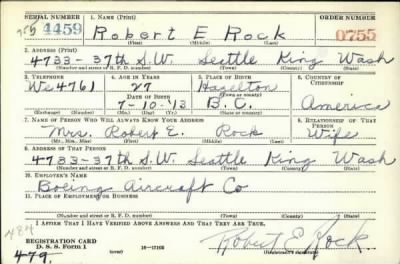 SERIAL NUMBER 1. NAME (Print) ORDER NUMBER
4459 Robert E Rock 0755
(First) (Middle) (Last)
2. ADDRESS (Print)
4733-37th S.W. Seattle King Wash
(Number and street or R. F. D. number) (Town) (County) (State)
3. TELEPHONE 4. AGE IN YEARS 5. PLACE OF BIRTH 6. COUNTRY OF CITIZENSHIP
We 4761 27 Hazelton
DATE OF BIRTH (Town or county)
7-10-'13 B.C. America
(Exchange) (Number) (Mo.) (Day) (Yr.) (State or country)
7. NAME OF PERSON WHO WILL ALWAYS KNOW YOUR ADDRESS 8. RELATIONSHIP OF THAT PERSON
Mrs. Robert E. Rock Wife
(Mr., Mrs., Miss) (First) (Middle) (Last)
9. ADDRESS OF THAT PERSON
4733-37th S.W. Seattle King Wash
(Number and street or R. F. D. number) (Town) (County) (State)
10. EMPLOYER'S NAME
Boeing Aircraft Co
11. PLACE OF EMPLOYMENT OR BUSINESS
(Number and street or R. F. D. number) (Town) (County) (State)
I AFFIRM THAT I HAVE VERIFIED ABOVE ANSWERS AND THAT THEY ARE TRUE.
REGISTRATION CARD
D. S. S. Form 1 Robert E. Rock
479. (Registrant's signature)